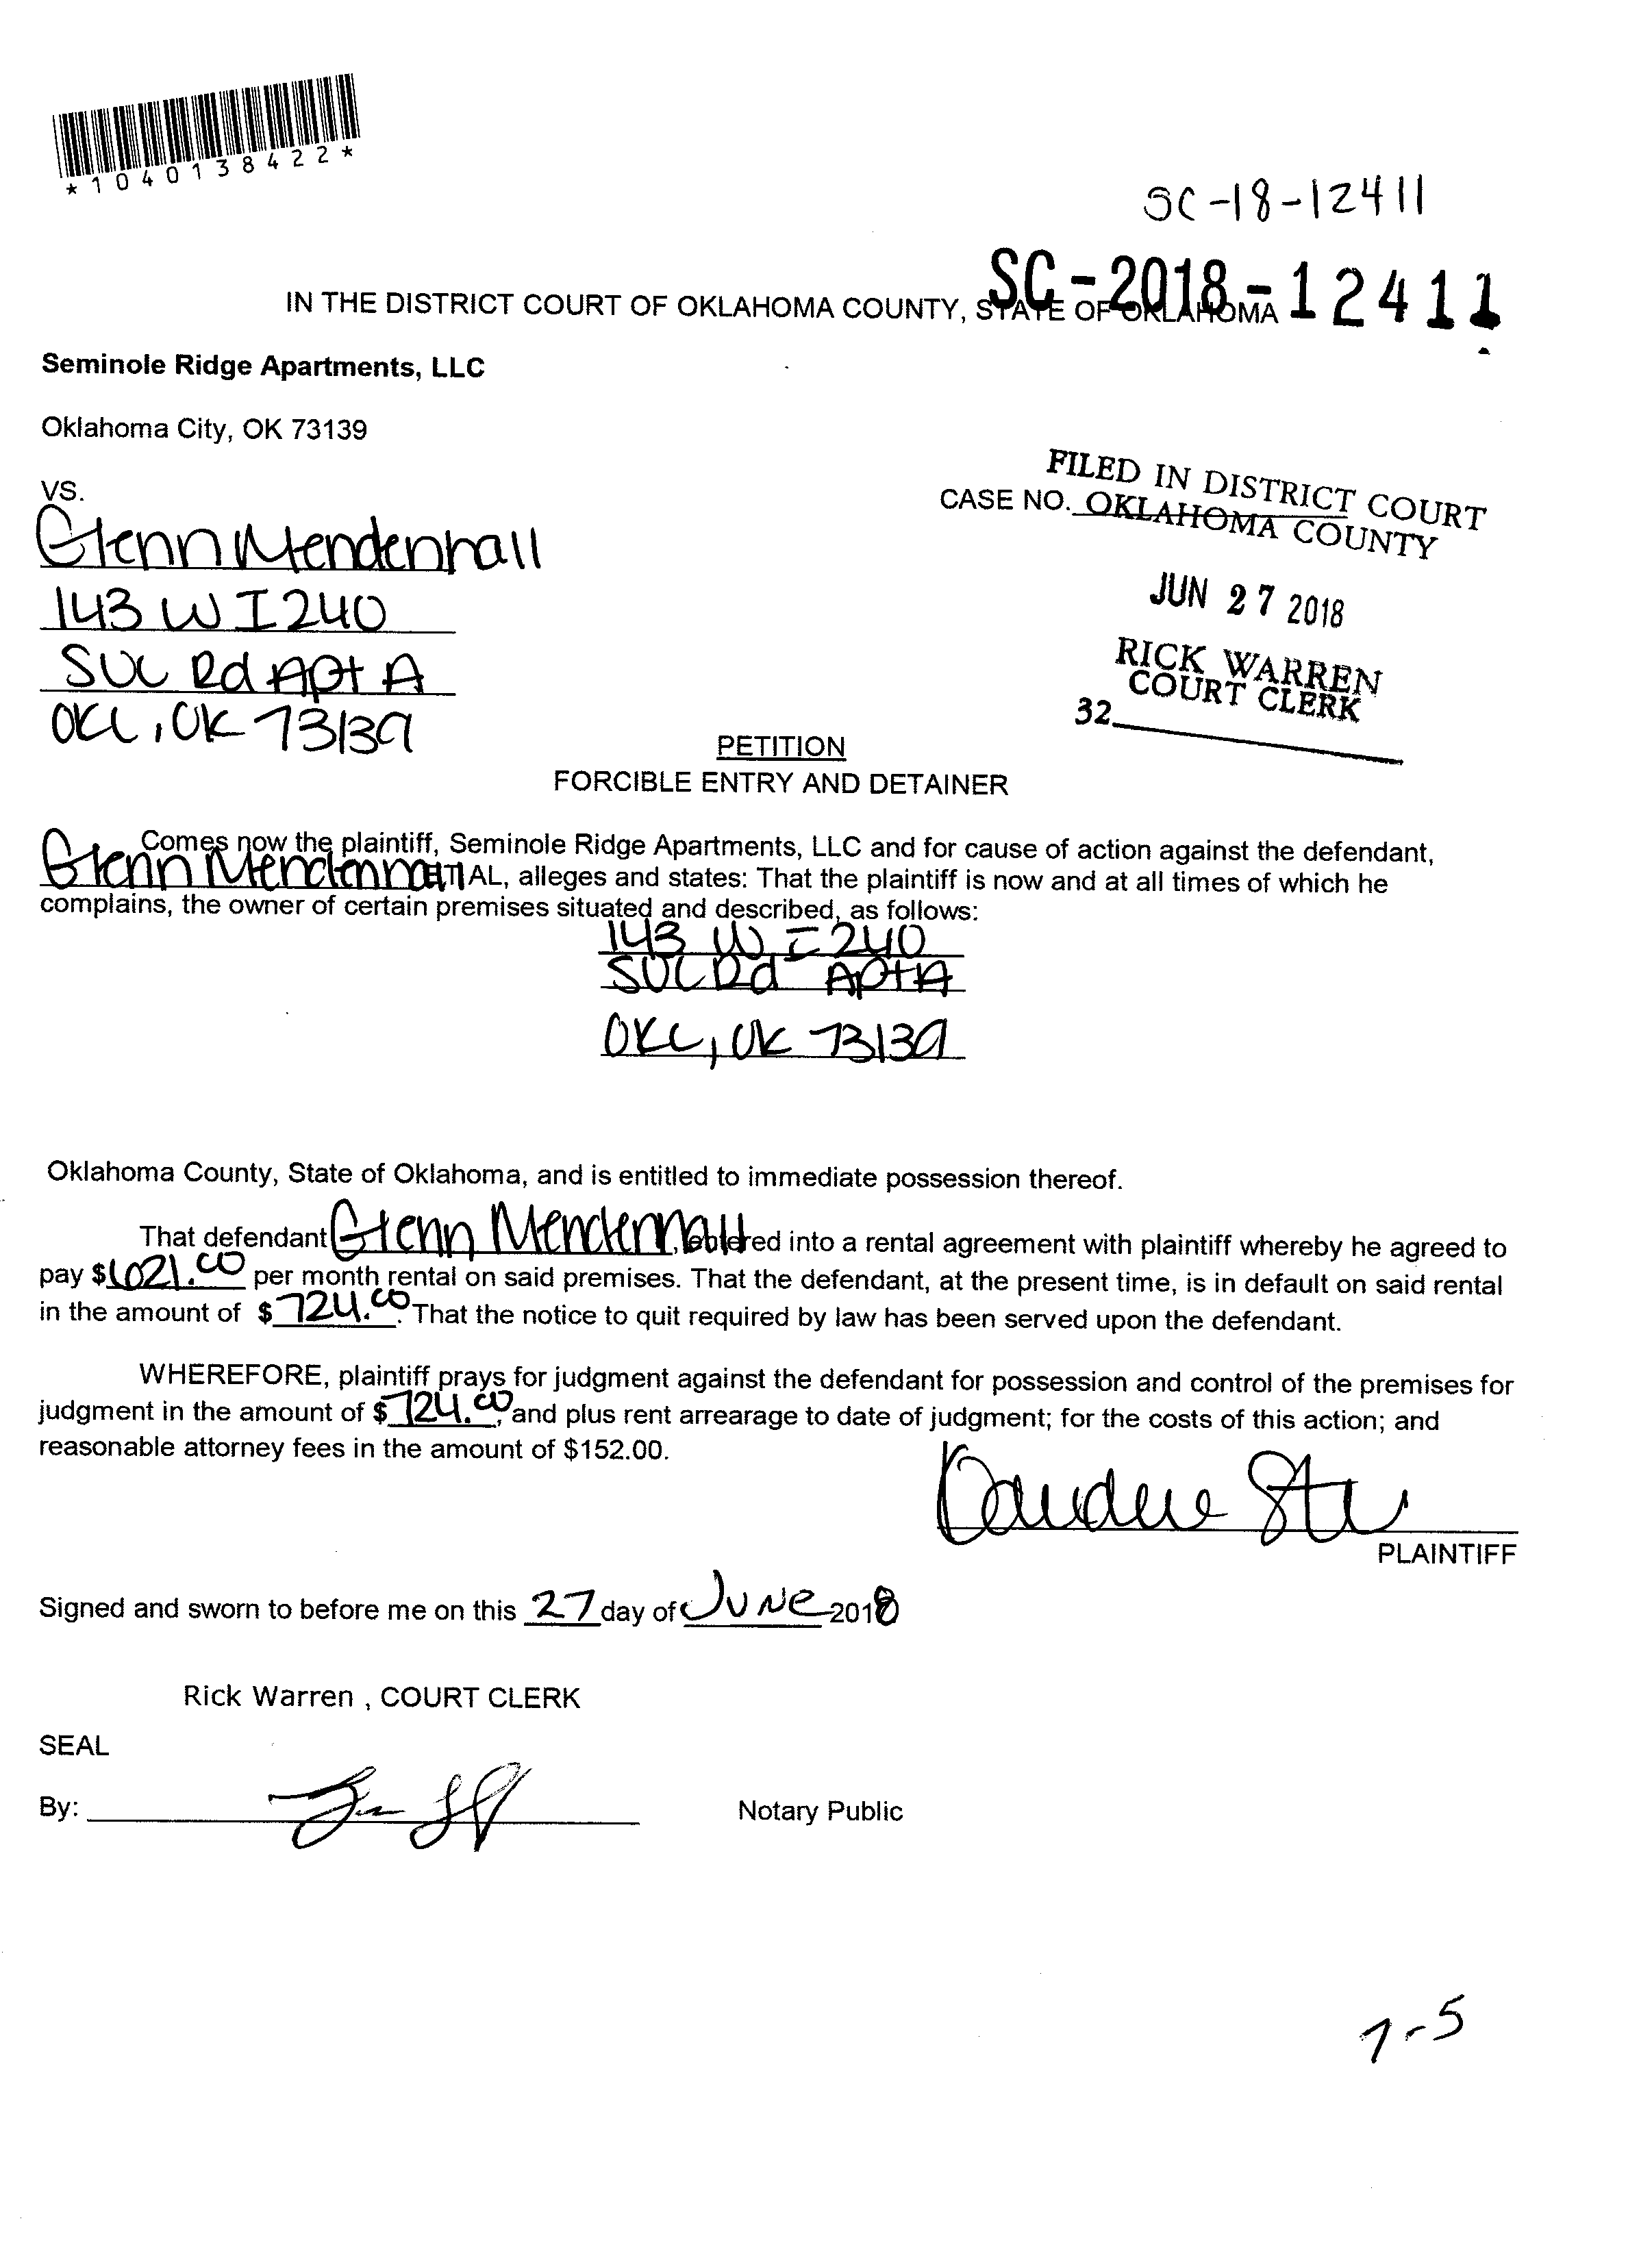 *1040138422*
SC-18-12411
SC-2018-12411
IN THE DISTRICT COURT OF OKLAHOMA COUNTY, STATE OF OKLAHOMA
Seminole Ridge Apartments, LLC
Oklahoma City, OK 73139
VS.
FILED IN DISTRICT COURT
CASE NO. OKLAHOMA COUNTY
Glenn Mendenhall
143 W I 240
JUN 27 2018
SVC Rd Apt A
RICK WARREN
COURT CLERK
OKC, OK 73139
32
PETITION
FORCIBLE ENTRY AND DETAINER
Comes now the plaintiff, Seminole Ridge Apartments, LLC and for cause of action against the defendant,
Glenn Mendenhall ET AL, alleges and states: That the plaintiff is now and at all times of which he
complains, the owner of certain premises situated and described, as follows:
143 W I 240
SVC Rd Apt A
OKC, OK 73139
Oklahoma County, State of Oklahoma, and is entitled to immediate possession thereof.
That defendant Glenn Mendenhall, entered into a rental agreement with plaintiff whereby he agreed to
pay $ .00 per month rental on said premises. That the defendant, at the present time, is in default on said rental
in the amount of $ 724.00. That the notice to quit required by law has been served upon the defendant.
WHEREFORE, plaintiff prays for judgment against the defendant for possession and control of the premises for
judgment in the amount of $ 724.00, and plus rent arrearage to date of judgment; for the costs of this action; and
reasonable attorney fees in the amount of $152.00.
PLAINTIFF
Signed and sworn to before me on this 27 day of JUNE 2018
Rick Warren , COURT CLERK
SEAL
By: Notary Public
7-5